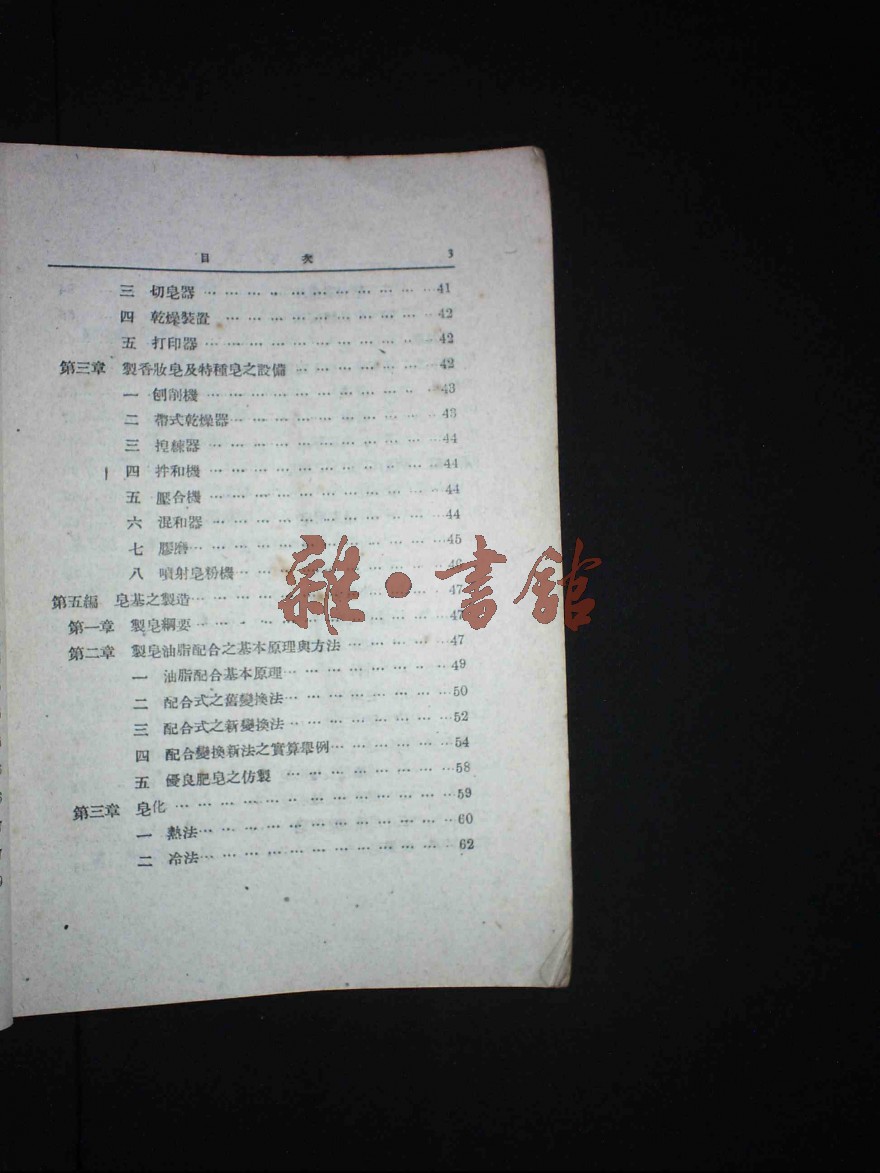 目 次 3
三 切皂器 … … … … … … … … … … … 41
四 乾燥裝置 … … … … … … … … … … 42
五 打印器 … … … … … … … … … … … 42
第三章 製香妝皂及特種皂之設備 … … … … … … … 42
一 刨削機 … … … … … … … … … … … 43
二 帶式乾燥器 … … … … … … … … … … 43
三 揑練器 … … … … … … … … … … … 44
四 拌和機 … … … … … … … … … … … 44
五 壓合機 … … … … … … … … … … … 44
六 混和器 … … … … … … … … … … … 44
七 膠磨 … … … … … … … … … … … 45
八 噴射皂粉機 … … … … … … … … … … 46
第五編 皂基之製造 … … … … … … … … … … 47
第一章 製皂綱要 … … … … … … … … … … 47
第二章 製皂油脂配合之基本原理與方法 … … … … … 47
一 油脂配合基本原理 … … … … … … … … 49
二 配合式之舊變換法 … … … … … … … … 50
三 配合式之新變換法 … … … … … … … … 52
四 配合變換新法之實算舉例 … … … … … … 54
五 優良肥皂之仿製 … … … … … … … … 58
第三章 皂化 … … … … … … … … … … … 59
一 熱法 … … … … … … … … … … … 60
二 冷法 … … … … … … … … … … … 62
雜·書館